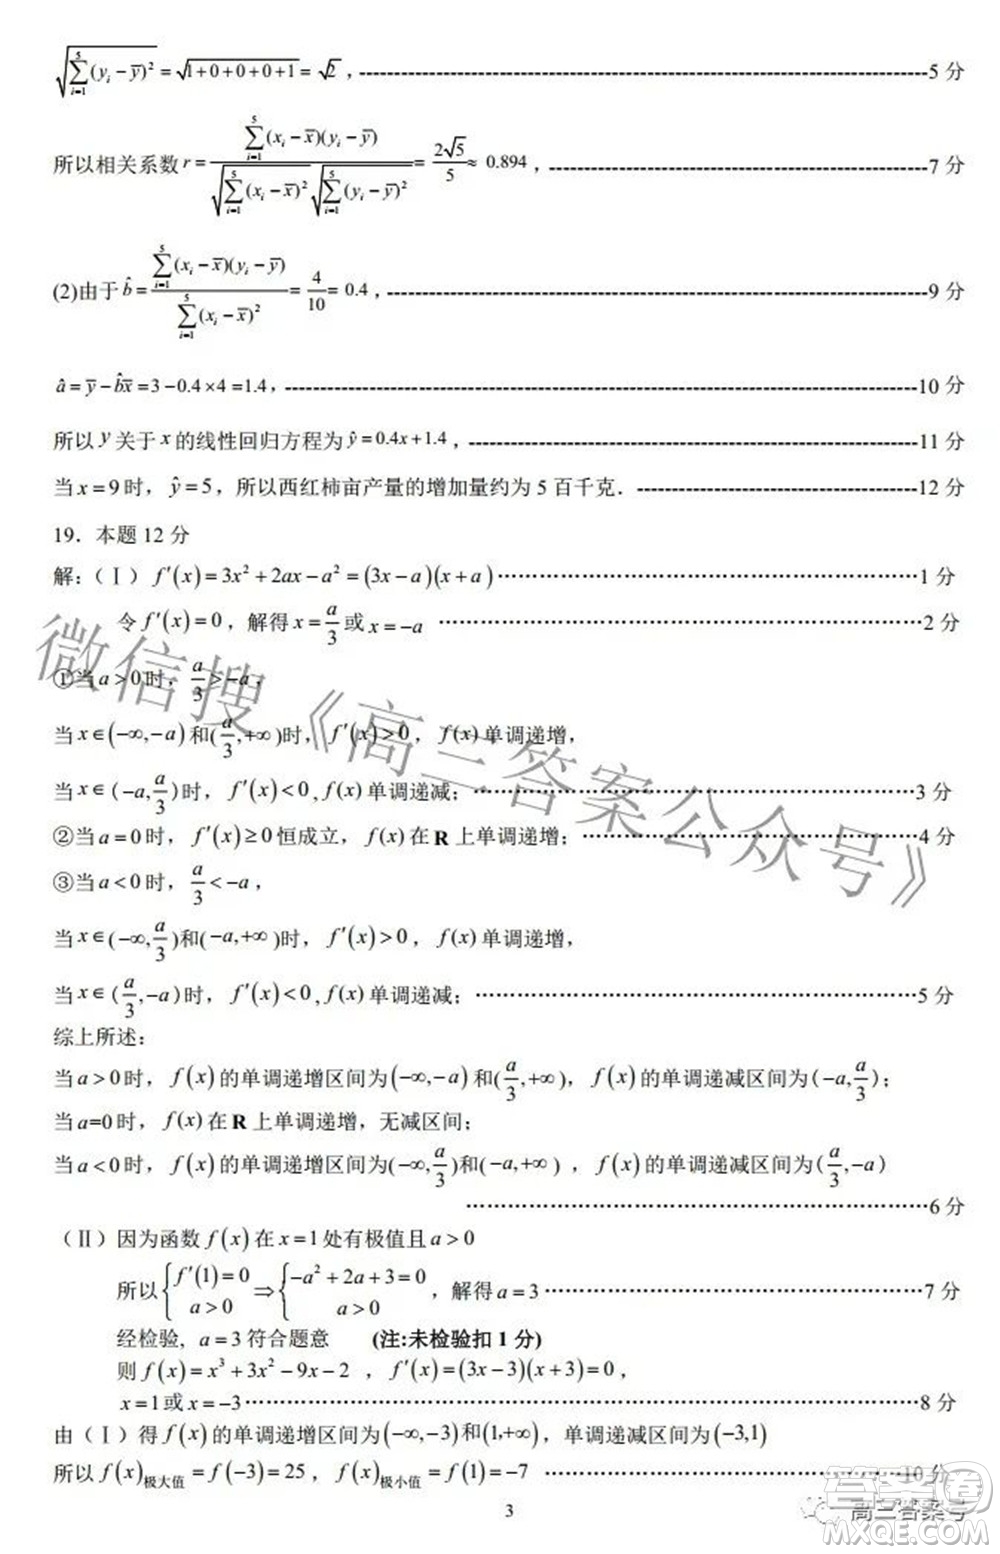 √(∑_{i=1}^{5}(y_i−ȳ)²) = √(1+0+0+0+1) = √2，----------5 分
所以相关系数 r = ∑_{i=1}^{5}(x_i−x̄)(y_i−ȳ) / (√(∑_{i=1}^{5}(x_i−x̄)²) √(∑_{i=1}^{5}(y_i−ȳ)²)) = 2√5/5 ≈ 0.894，----------7 分
(2)由于 b̂ = ∑_{i=1}^{5}(x_i−x̄)(y_i−ȳ) / ∑_{i=1}^{5}(x_i−x̄)² = 4/10 = 0.4，----------9 分
â = ȳ − b̂x̄ = 3 − 0.4×4 = 1.4，----------10 分
所以 y 关于 x 的线性回归方程为 ŷ = 0.4x+1.4，----------11 分
当 x = 9 时，ŷ = 5，所以西红柿亩产量的增加量约为 5 百千克．----------12 分
19．本题 12 分
解：（Ⅰ）f′(x) = 3x² + 2ax − a² = (3x − a)(x + a)…………1 分
令 f′(x) = 0，解得 x = a/3 或 x = −a …………2 分
①当 a > 0 时，a/3 > −a，
当 x∈(−∞,−a) 和(a/3,+∞)时，f′(x) > 0，f(x) 单调递增，
当 x∈(−a,a/3)时，f′(x) < 0, f(x) 单调递减；…………3 分
②当 a = 0 时，f′(x) ≥ 0 恒成立，f(x) 在 R 上单调递增；…………4 分
③当 a < 0 时，a/3 < −a，
当 x∈(−∞,a/3)和(−a,+∞)时，f′(x) > 0，f(x) 单调递增，
当 x∈(a/3,−a)时，f′(x) < 0, f(x) 单调递减；…………5 分
综上所述：
当 a > 0 时，f(x) 的单调递增区间为(−∞,−a) 和(a/3,+∞)，f(x) 的单调递减区间为(−a,a/3)；
当 a=0 时，f(x) 在 R 上单调递增，无减区间；
当 a < 0 时，f(x) 的单调递增区间为(−∞,a/3)和(−a,+∞)，f(x) 的单调递减区间为(a/3,−a)
…………6 分
（Ⅱ）因为函数 f(x) 在 x = 1 处有极值且 a > 0
所以 {f′(1) = 0, a > 0 ⇒ {−a² + 2a + 3 = 0, a > 0，解得 a = 3…………7 分
经检验，a = 3 符合题意 (注:未检验扣 1 分)
则 f(x) = x³ + 3x² − 9x − 2 ，f′(x) = (3x − 3)(x + 3) = 0，
x = 1 或 x = −3…………8 分
由（Ⅰ）得 f(x) 的单调递增区间为(−∞,−3) 和(1,+∞)，单调递减区间为(−3,1)
所以 f(x)极大值 = f(−3) = 25，f(x)极小值 = f(1) = −7 …………10 分
3
微信搜《高三答案公众号》
高三答案号
答案圈
MXQE.COM